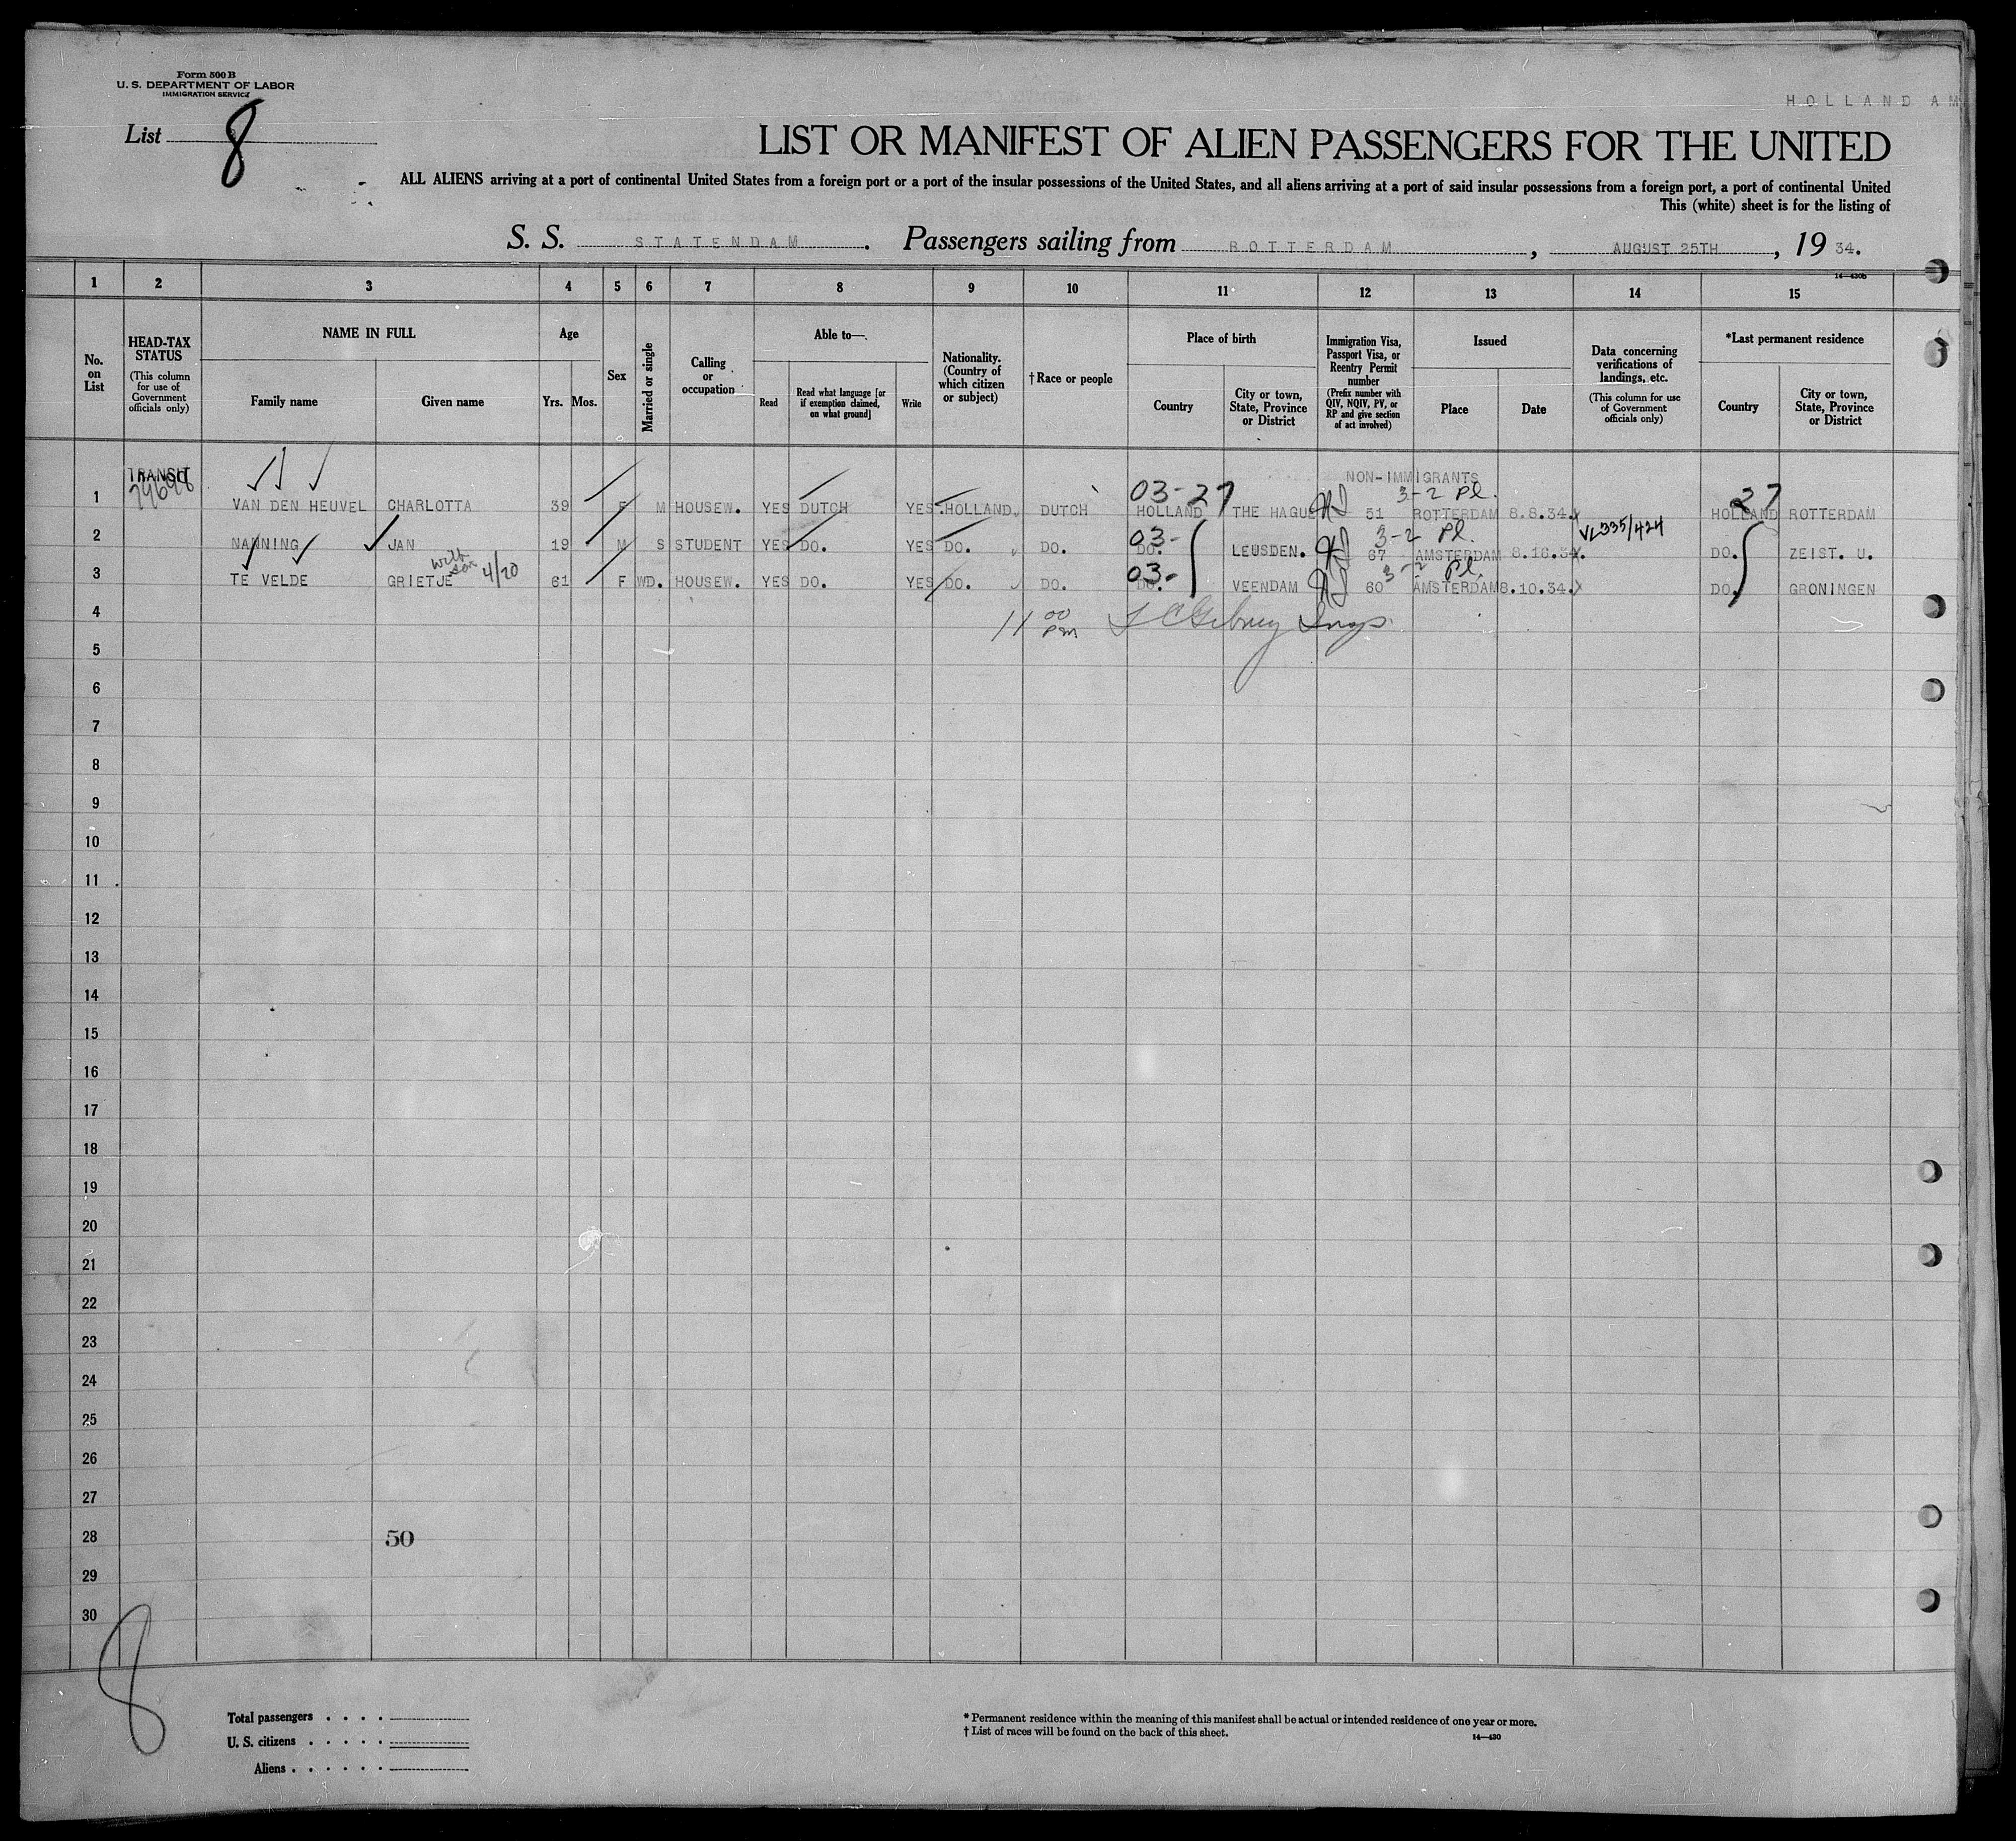 Form 500 B
U. S. DEPARTMENT OF LABOR
IMMIGRATION SERVICE
HOLLAND AM
List 8
LIST OR MANIFEST OF ALIEN PASSENGERS FOR THE UNITED
ALL ALIENS arriving at a port of continental United States from a foreign port or a port of the insular possessions of the United States, and all aliens arriving at a port of said insular possessions from a foreign port, a port of continental United
This (white) sheet is for the listing of
S. S. STATENDAM . Passengers sailing from ROTTERDAM , AUGUST 25TH , 19 34.
14—430b
1 2 3 4 5 6 7 8 9 10 11 12 13 14 15
No. on List
HEAD-TAX STATUS
(This column for use of Government officials only)
NAME IN FULL
Family name
Given name
Age
Yrs. Mos.
Sex
Married or single
Calling or occupation
Able to—
Read
Read what language [or if exemption claimed, on what ground]
Write
Nationality. (Country of which citizen or subject)
† Race or people
Place of birth
Country
City or town, State, Province or District
Immigration Visa, Passport Visa, or Reentry Permit number
(Prefix number with QIV, NQIV, PV, or RP and give section of act involved)
Issued
Place
Date
Data concerning verifications of landings, etc.
(This column for use of Government officials only)
*Last permanent residence
Country
City or town, State, Province or District
TRANSIT NON-IMMIGRANTS
03-27 3-2 Pl. 27
1 VAN DEN HEUVEL CHARLOTTA 39 F M HOUSEW. YES DUTCH YES HOLLAND. DUTCH HOLLAND THE HAGUE 51 ROTTERDAM 8.8.34. HOLLAND ROTTERDAM
03- 3-2 Pl. VL335/424
2 NANNING JAN 19 M S STUDENT YES DO. YES DO. DO. DO. LEUSDEN. 67 AMSTERDAM 8.16.34. DO. ZEIST. U.
with son 4/20 03- 3-2 Pl.
3 TE VELDE GRIETJE 61 F WD. HOUSEW. YES DO. YES DO. DO. DO. VEENDAM 60 AMSTERDAM 8.10.34. DO. GRONINGEN
4 11 00 pm
5
6
7
8
9
10
11
12
13
14
15
16
17
18
19
20
21
22
23
24
25
26
27
28 50
29
30
8
Total passengers
U. S. citizens
Aliens
* Permanent residence within the meaning of this manifest shall be actual or intended residence of one year or more.
† List of races will be found on the back of this sheet.
14—430